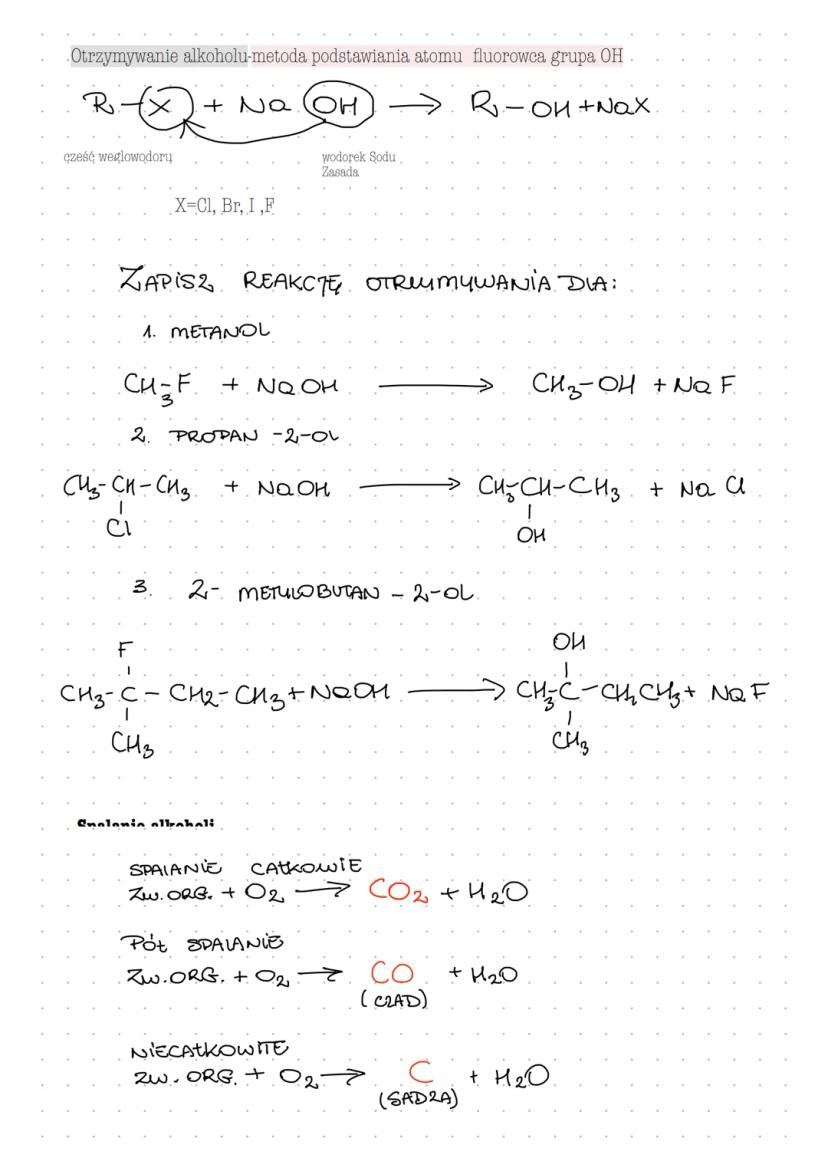 Otrzymywanie alkoholu-metoda podstawiania atomu fluorowca grupa OH
R-X + NaOH → R-OH + NaX
cześć węglowodory wodorek Sodu
Zasada
X=Cl, Br, I ,F
ZAPISZ REAKCJĘ OTRZYMYWANIA DLA:
1. METANOL
CH3-F + NaOH → CH3-OH + NaF
2. PROPAN -2-OL
CH3-CH-CH3 + NaOH → CH3-CH-CH3 + NaCl
Cl OH
3. 2- METYLOBUTAN - 2-OL
F OH
CH3-C-CH2-CH3 + NaOH → CH3-C-CH2CH3 + NaF
CH3 CH3
Spalanie alkoholi
SPALANIE CAŁKOWIE
ZW.ORG. + O2 → CO2 + H2O
PÓŁ SPALANIE
ZW.ORG. + O2 → CO + H2O
(CZAD)
NIECAŁKOWITE
ZW. ORG. + O2 → C + H2O
(SADZA)